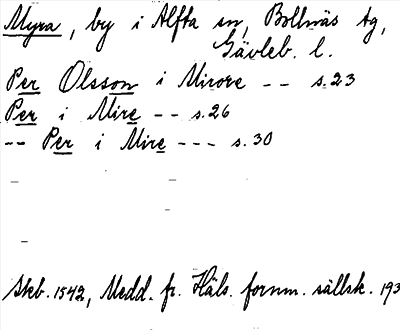 Myra, by i Alfta sn, Bollnäs tg,
Gävleb. l.
Per Olsson i Mirore -- s. 23
Per i Mire -- s. 26
-- Per i Mire --- s. 30
Skb. 1542, Medd. fr. Häls. fornm. sällsk. 193